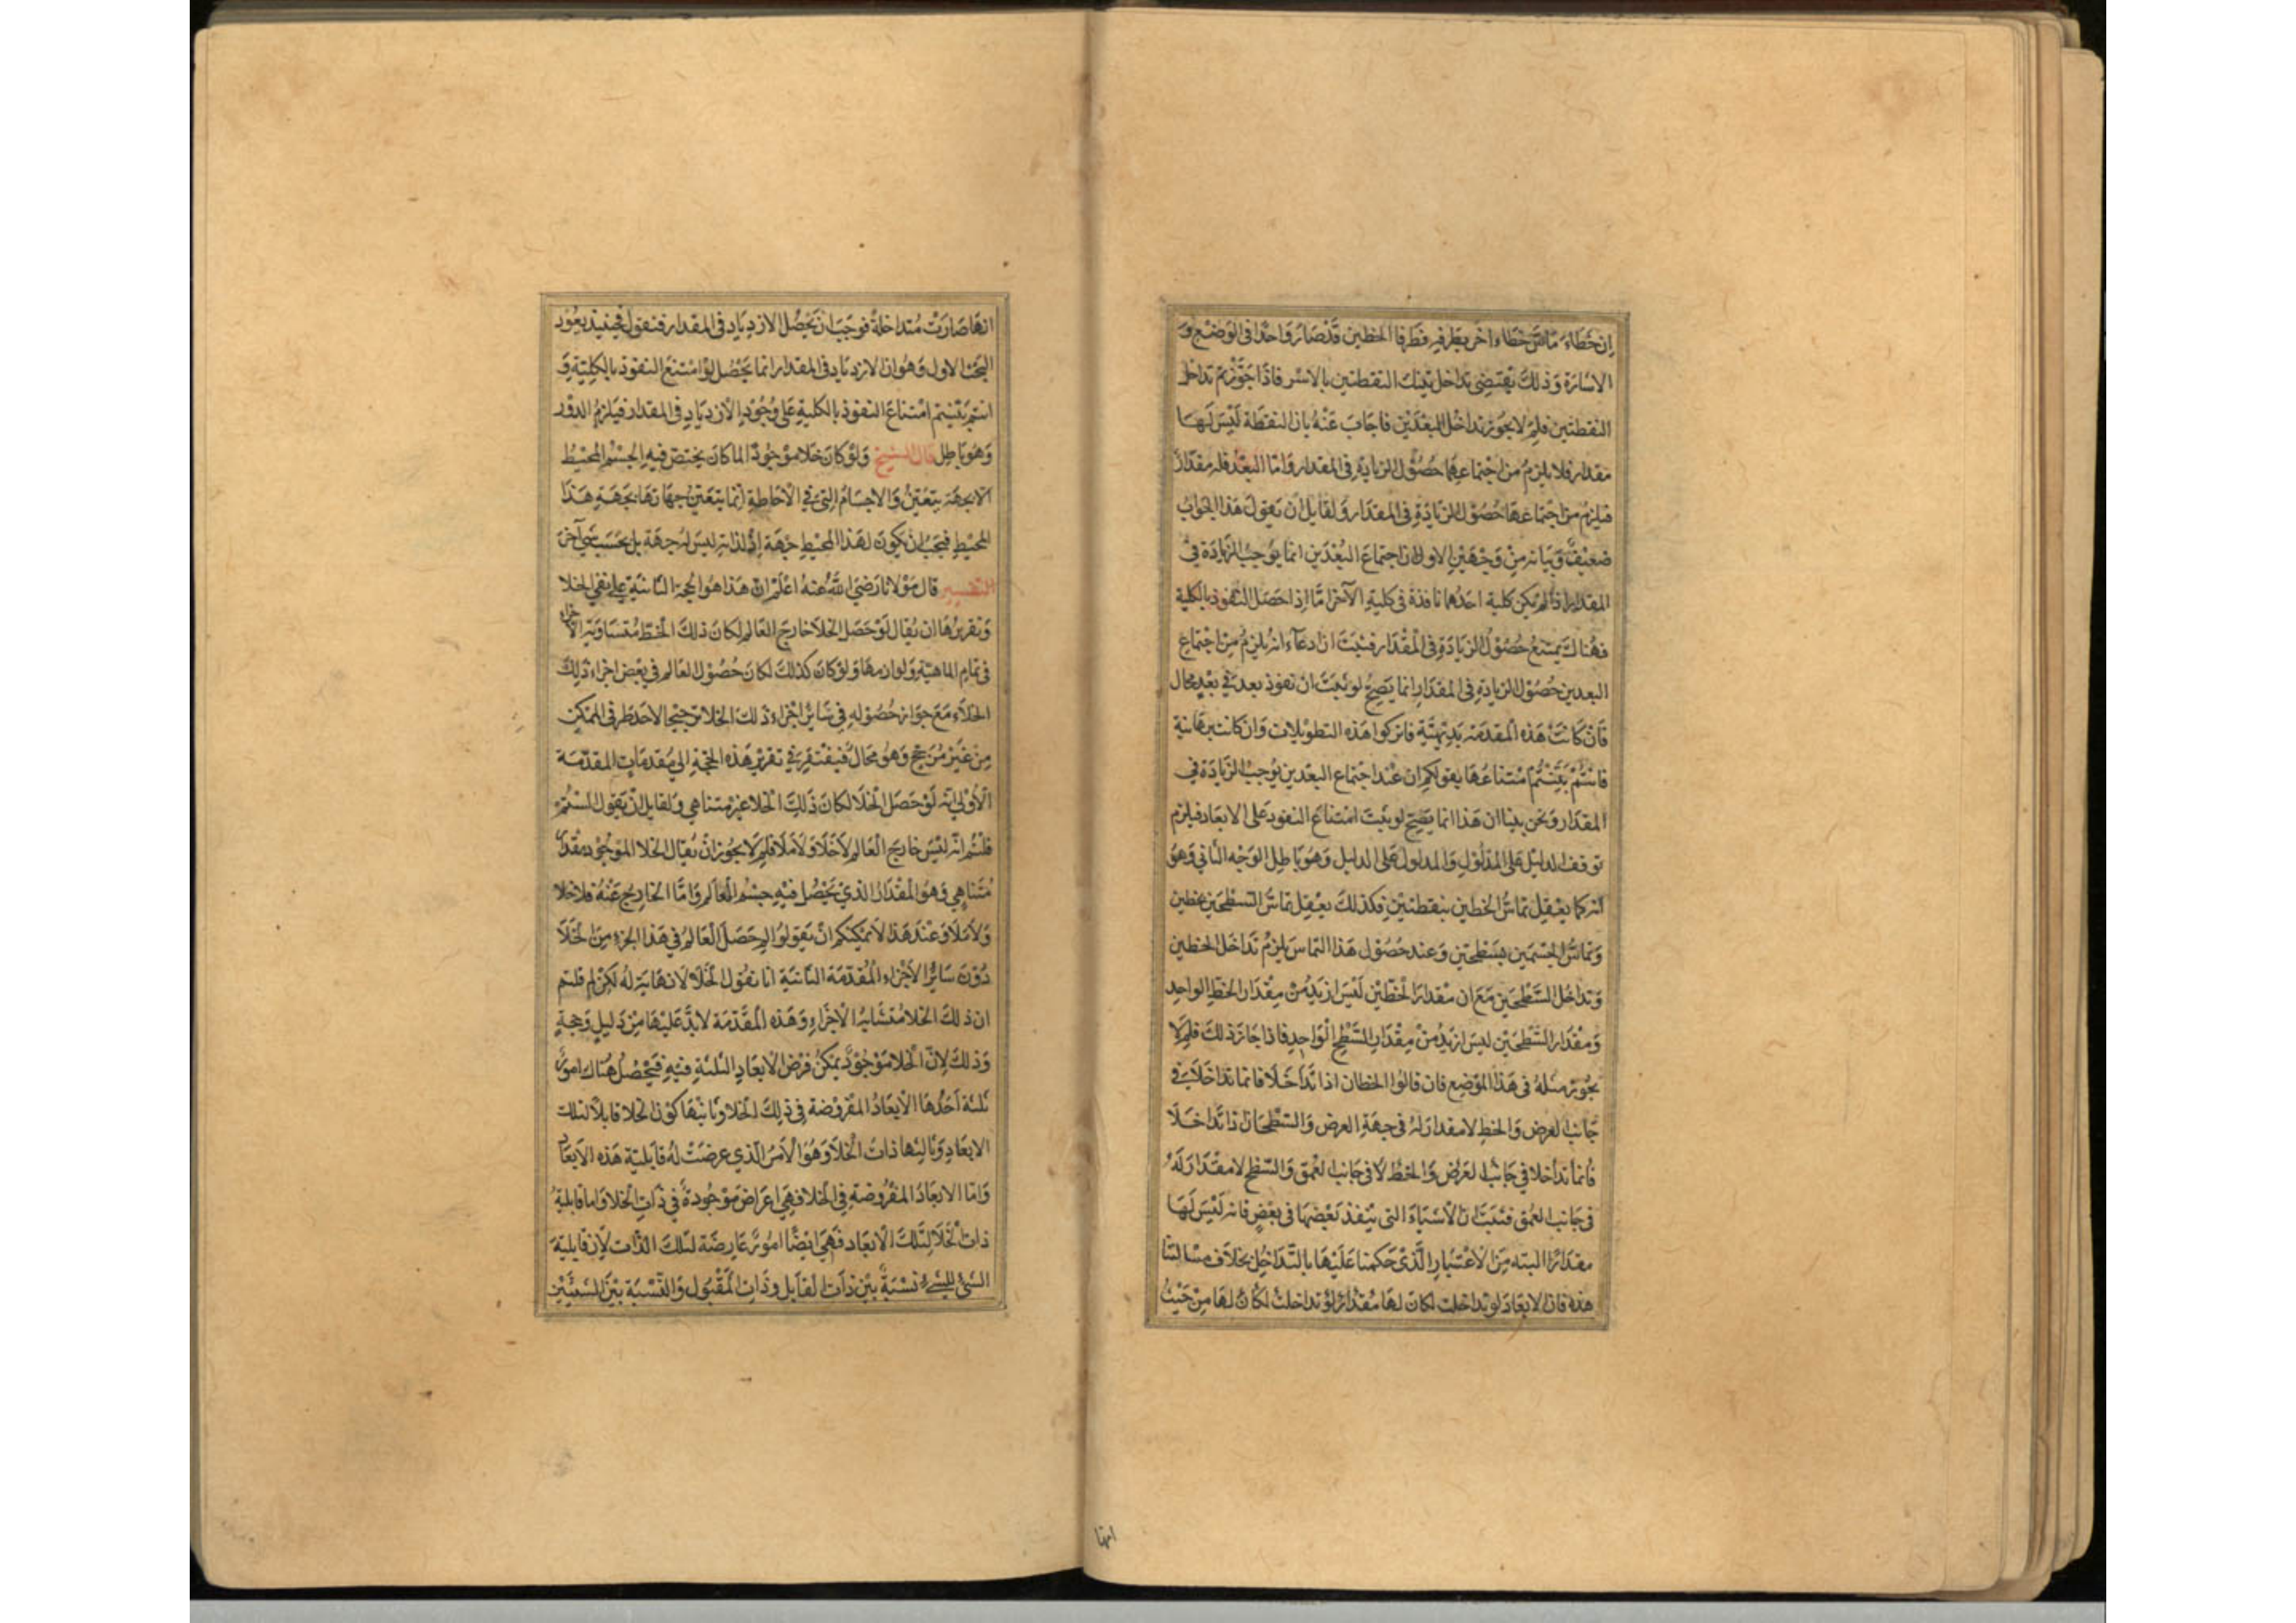 ان خطاء ماس خطاء اخر بطرفيه فطرفا الخطين قد صارا واحدا في الوضع و
الاشارة وذلك يقتضي تداخل تينك النقطتين بالاسر فاذا جوزتم تداخل
النقطتين فلم لا يجوز تداخل البعدين فاجاب عنه بان النقطة ليس لها
مقدار فلا يلزم من اجتماعهما حصول الزيادة في المقدار واما البعد فله مقدار
فيلزم من اجتماعها حصول الزيادة في المقدار ولقايل ان يقول هذا الجواب
ضعيف وبيانه من وجهين الاول ان اجتماع البعدين انما يوجب الزيادة في
المقدار اذا لم يكن كلية احدهما نافذة في كلية الآخر اما اذا حصل النفوذ بالكلية
فهناك يمتنع حصول الزيادة في المقدار فثبت ان ادعاء انه يلزم من اجتماع
البعدين حصول الزيادة في المقدار انما يصح لو ثبت ان نفوذ بعد في بعد محال
فان كانت هذه المقدمة بديهية فاتركوا هذه التطويلات وان كانت برهانية
فانتم بينتم امتناعها بقولكم ان عند اجتماع البعدين يوجب الزيادة في
المقدار ونحن بينا ان هذا انما يصح لو ثبت امتناع النفوذ على الابعاد فيلزم
توقف الدليل على المدلول والمدلول على الدليل وهو باطل الوجه الثاني وهو
انه كما يعقل تماس الخطين بنقطتين فكذلك يعقل تماس السطحين بخطين
وتماس الجسمين بسطحين وعند حصول هذا التماس يلزم تداخل الخطين
وتداخل السطحين مع ان مقدار الخطين ليس ازيد من مقدار الخط الواحد
ومقدار السطحين ليس ازيد من مقدار السطح الواحد فاذا جاز ذلك فلم لا
يجوز مثله في هذا الموضع فان قالوا الخطان اذا تداخلا فانما تداخلا في
جانب العرض والخط لا مقدار له في جهة العرض والسطحان اذا تداخلا
فانما تداخلا في جانب العرض والخط لا في جانب العمق والسطح لا مقدار له
في جانب العمق فثبت ان الاشياء التي ينفذ بعضها في بعض فانه ليس لها
مقدار البته من الاعتبار الذي حكمنا عليها بالتداخل بخلاف مسالتنا
هذه فان الابعاد لو تداخلت لكان لها مقدار لو تداخلت لكان لها من حيث
انها
انها صارت متداخلة فوجب ان يحصل الازدياد في المقدار فنقول فحينئذ يعود
البحث الاول وهو ان الازدياد في المقدار انما يحصل لو امتنع النفوذ بالكلية و
انتم بينتم امتناع النفوذ بالكلية على وجود الازدياد في المقدار فيلزم الدور
وهو باطل قال الشيخ ولو كان خلا موجودا لما كان يختص فيه الجسم المحيط
الا بجهة يتعين والاجسام التي في الاحاطة انما يتعين جهاتها بجهة هذا
المحيط فيجب ان يكون لهذا المحيط جهة اذ لذاته ليس له جهة بل بحسب شي آخر
التفسير قال مولانا رضي الله عنه اعلم ان هذا هو الحجة الثانية على نفي الخلا
وتقريرها ان يقال لو حصل الخلا خارج العالم لكان ذلك الخط متساوية الاجزاء
في تمام الماهية ولوازمها ولو كان كذلك لكان حصول العالم في بعض اجزاء ذلك
الخلاء مع جواز حصوله في سائر اجزاء ذلك الخلا ترجيحا لاحد طرفي الممكن
من غير مرجح وهو محال فيفتقر في تقرير هذه الحجة الي مقدمات المقدمة
الاولي انه لو حصل الخلا لكان ذلك الخلا غير متناهي ولقايل ان يقول لستم
قلتم انه ليس خارج العالم لا خلا ولا ملا فلم لا يجوز ان يقال الخلا الموجود مقدار
متناهي وهو المقدار الذي يحصل فيه جسم العالم واما الخارج عنه فلا خلا
ولا ملا وعند هذا لا يمكنكم ان يقولوا لم حصل العالم في هذا الجزء من الخلا
دون سائر الاجزاء المقدمة الثانية انا نقول الخلا لا نهاية له لكن لم قلتم
ان ذلك الخلا متشابه الاجزاء وهذه المقدمة لا بد عليها من دليل وحجة
وذلك لان الخلا موجود يمكن فرض الابعاد الثلثة فيه فيحصل هناك امور
ثلثة احدها الابعاد المفروضة في ذلك الخلا وثانيها كون الخلا قابلا لتلك
الابعاد وثالثها ذات الخلا وهو الامر الذي عرضت له قابلية هذه الابعاد
واما الابعاد المفروضة في الخلا فهي اعراض موجودة في ذات الخلا واما قابلية
ذات الخلا لتلك الابعاد فهي ايضا امور عارضة لتلك الذات لان قابلية
الشي للشيء نسبة بين ذات القابل وذات المقبول والنسبة بين الشيئين